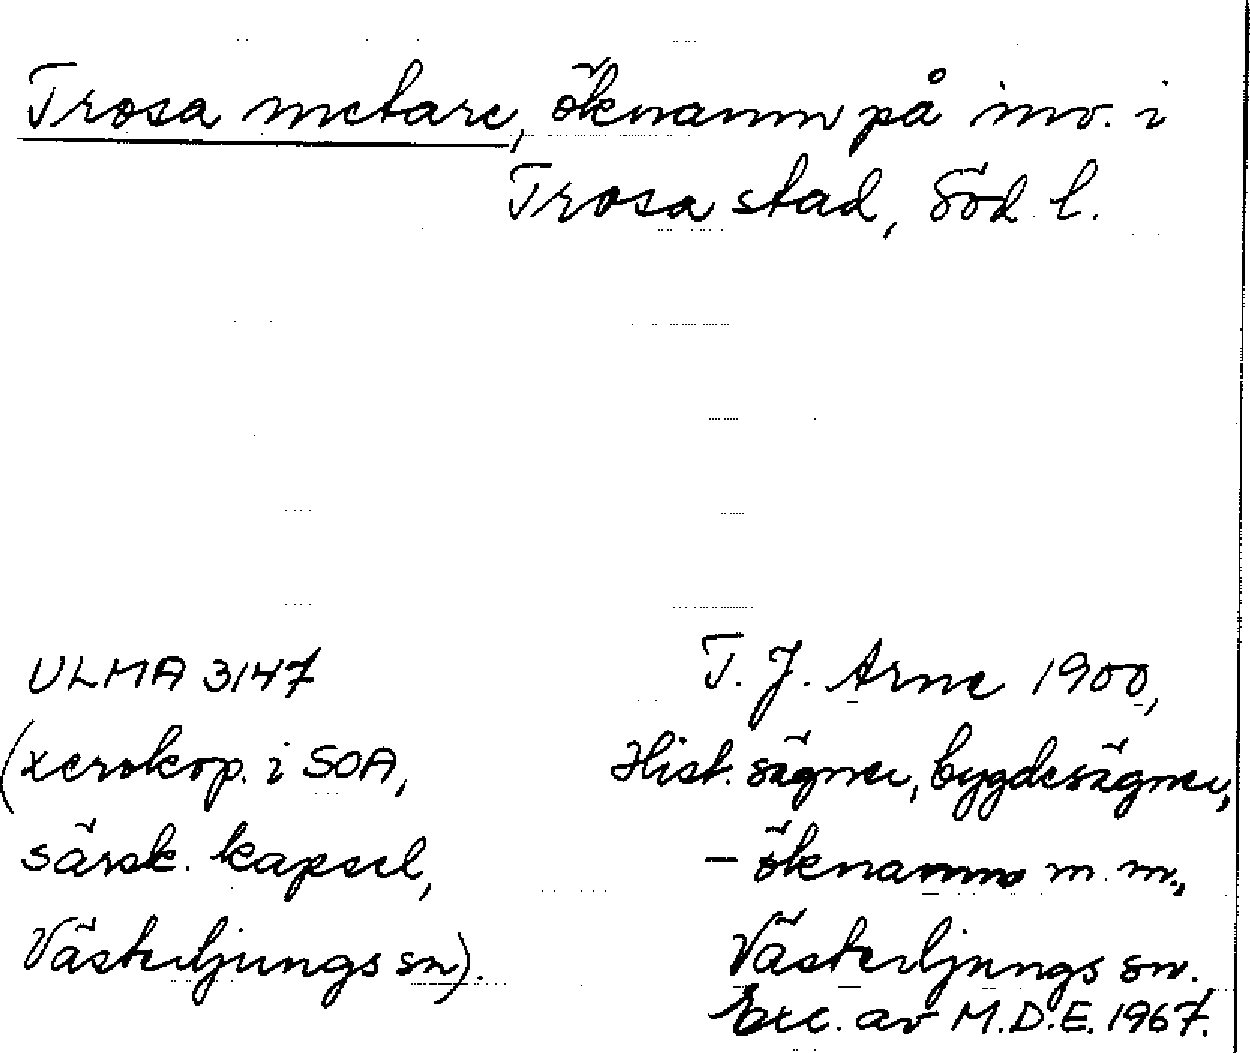 Trosa metare, öknamn på inv. i
Trosa stad, Söd. l.
ULMA 3147
(xerokop. i SOA,
särsk. kapsel,
Västerljungs sn).
T. J. Arne 1900,
Hist. sägner, bygdesägner,
– öknamn m. m.,
Västerljungs sn.
Exc. av M.D.E. 1967.